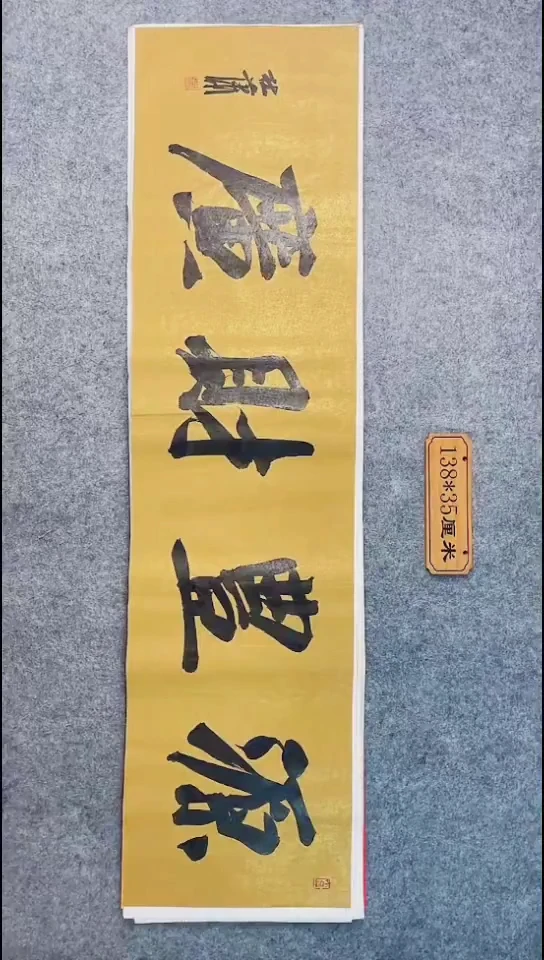 源豊財廣
138*35厘米